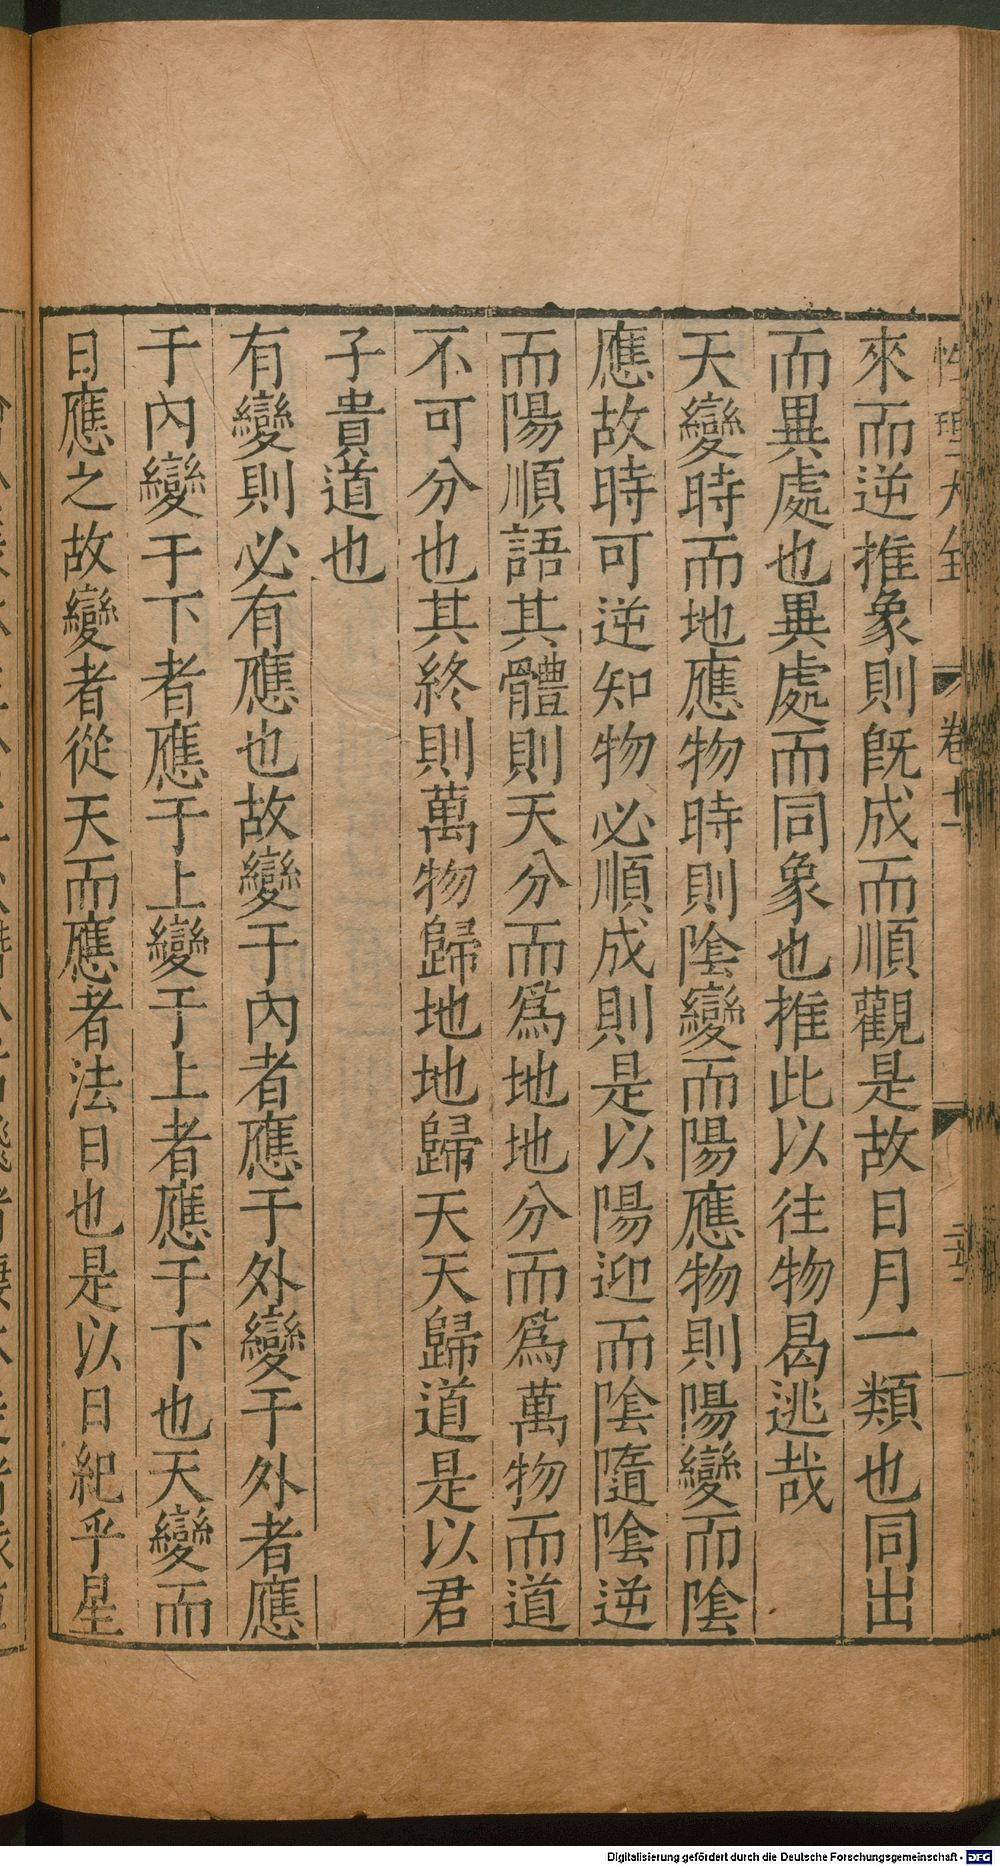 性理大全 卷十一
來而逆推象則旣成而順觀是故日月一類也同出
而異處也異處而同象也推此以往物曷逃哉
天變時而地應物時則陰變而陽應物則陽變而陰
應故時可逆知物必順成則是以陽迎而陰隨陰逆
而陽順語其體則天分而爲地地分而爲萬物而道
不可分也其終則萬物歸地地歸天天歸道是以君
子貴道也
有變則必有應也故變于內者應于外變于外者應
于內變于下者應于上變于上者應于下也天變而
日應之故變者從天而應者法日也是以日紀乎星
Digitalisierung gefördert durch die Deutsche Forschungsgemeinschaft - DFG